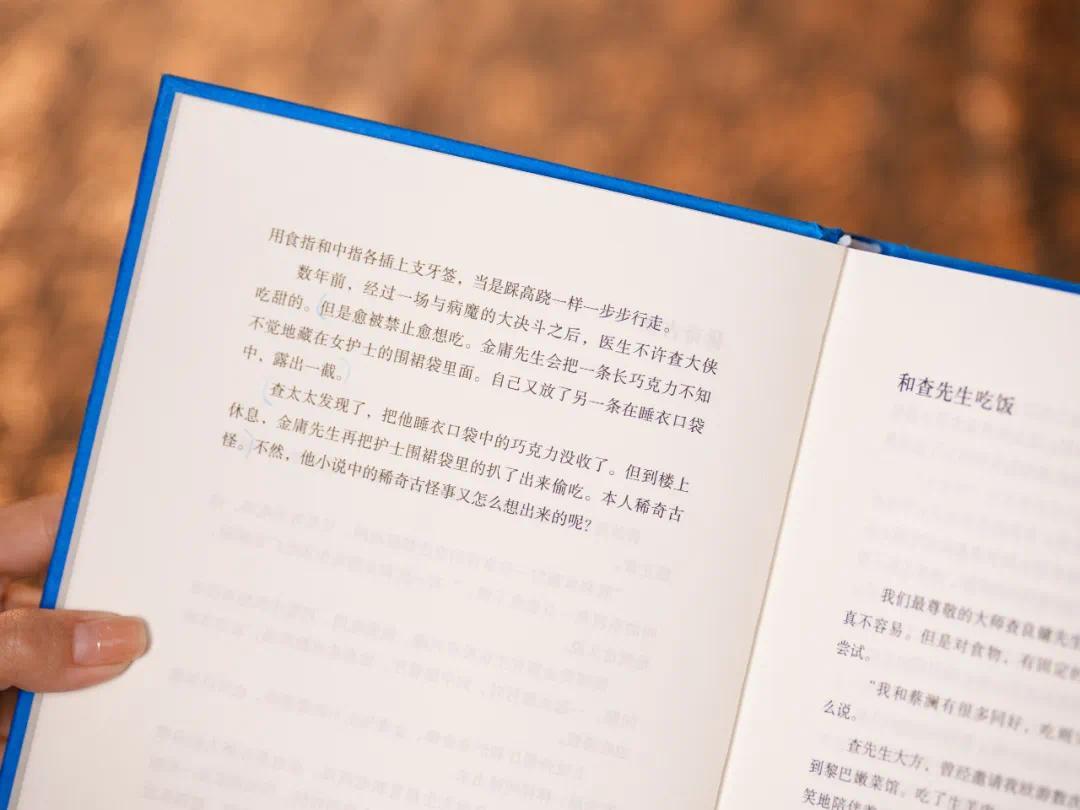 用食指和中指各插上支牙签，当是踩高跷一样一步步行走。
数年前，经过一场与病魔的大决斗之后，医生不许查大侠
吃甜的。但是愈被禁止愈想吃。金庸先生会把一条长巧克力不知
不觉地藏在女护士的围裙袋里面。自己又放了另一条在睡衣口袋
中，露出一截。
查太太发现了，把他睡衣口袋中的巧克力没收了。但到楼上
休息，金庸先生再把护士围裙袋里的扒了出来偷吃。本人稀奇古
怪。不然，他小说中的稀奇古怪事又怎么想出来的呢？
和查先生吃饭
我们最尊敬的大师查良镛先生
真不容易。但是对食物，有固定的
尝试。
“我和蔡澜有很多同好，吃则
么说。
查先生大方，曾经邀请我欧游数
到黎巴嫩菜馆。吃了生羊
笑地陪伴